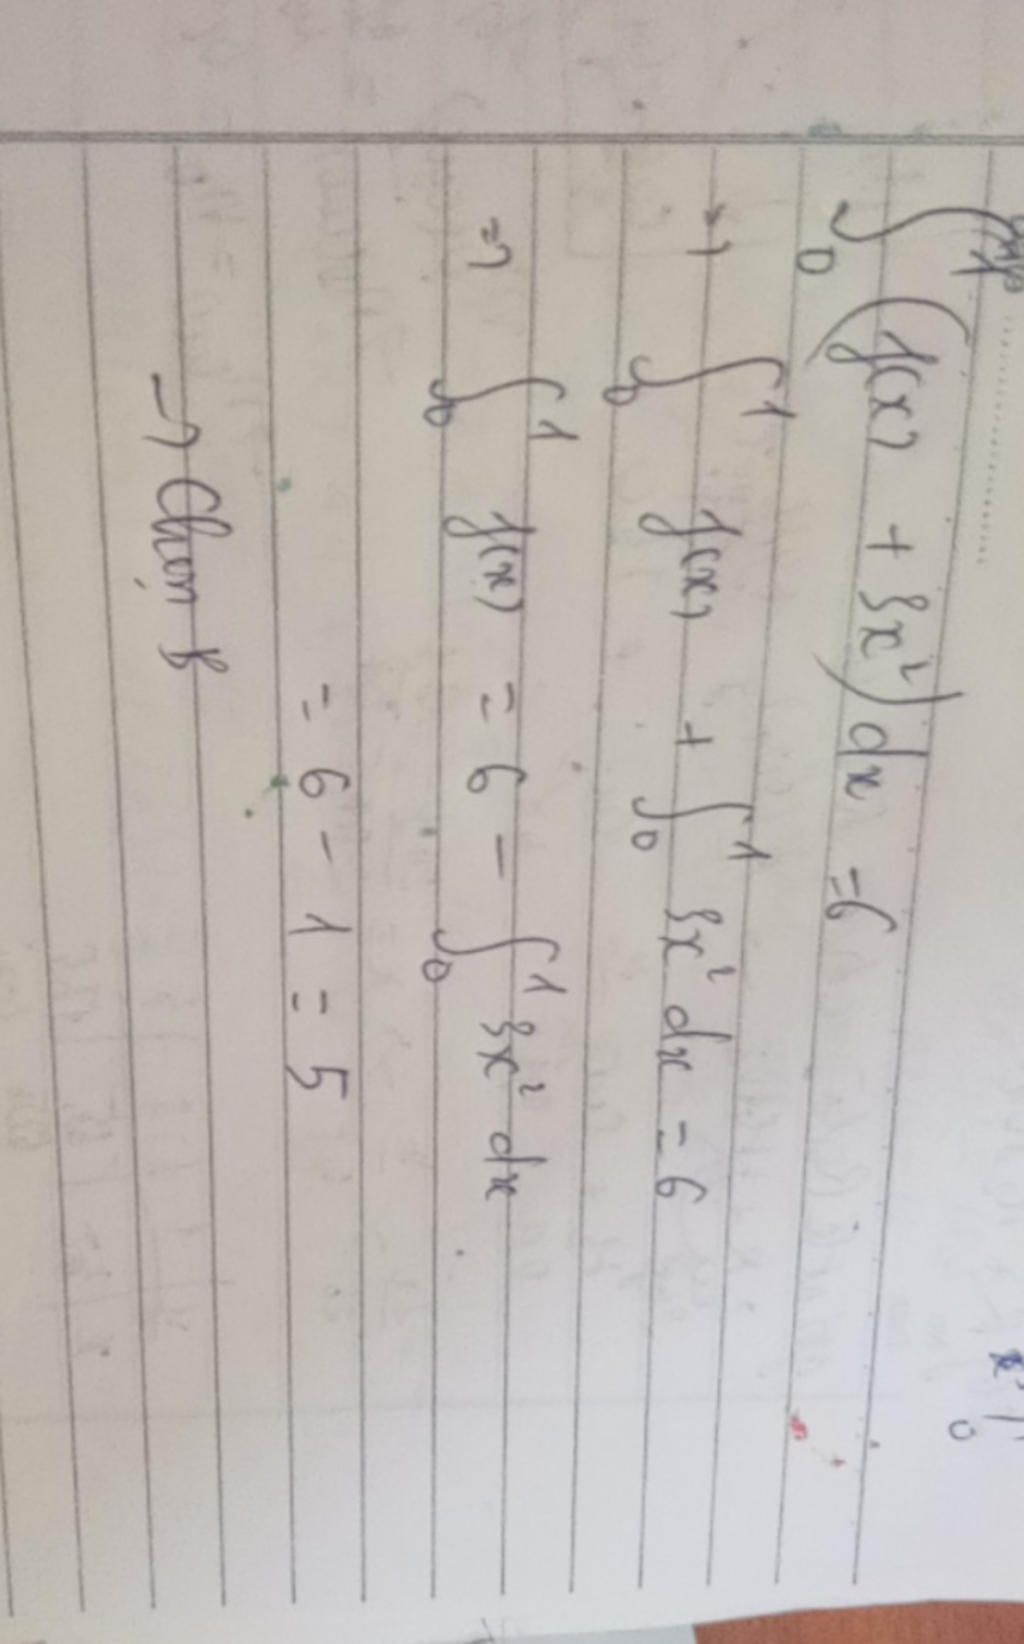 ∫₀¹ (f(x) + 3x²) dx = 6
→ ∫₀¹ f(x) + ∫₀¹ 3x² dx = 6
=> ∫₀¹ f(x) = 6 - ∫₀¹ 3x² dx
= 6 - 1 = 5
→ Chọn B